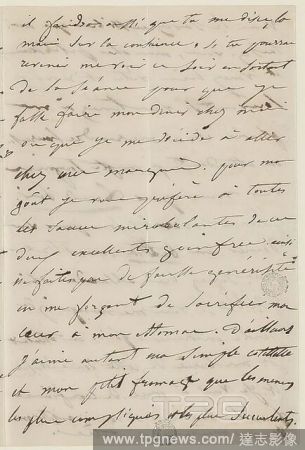 il faudra aussi que tu me dises la
main sur la conscience, si tu pourras
revenir me voir ce soir en sortant
de la séance pour que je
fasse faire mon diner chez moi
ou que je me décide à aller
chez une marquise. pour mon
goût je vous préfère à toutes
les sauces mirobolantes de ce
deux excellents
de fausse générosité
en me forçant de sacrifier mon
cœur à mon estomac. D'ailleurs
j'aime autant ma simple cotelette
et mon petit fromage que les menus
les plus compliqués et les plus succulents.
TPG
www.tpgnews.com / 達志影像